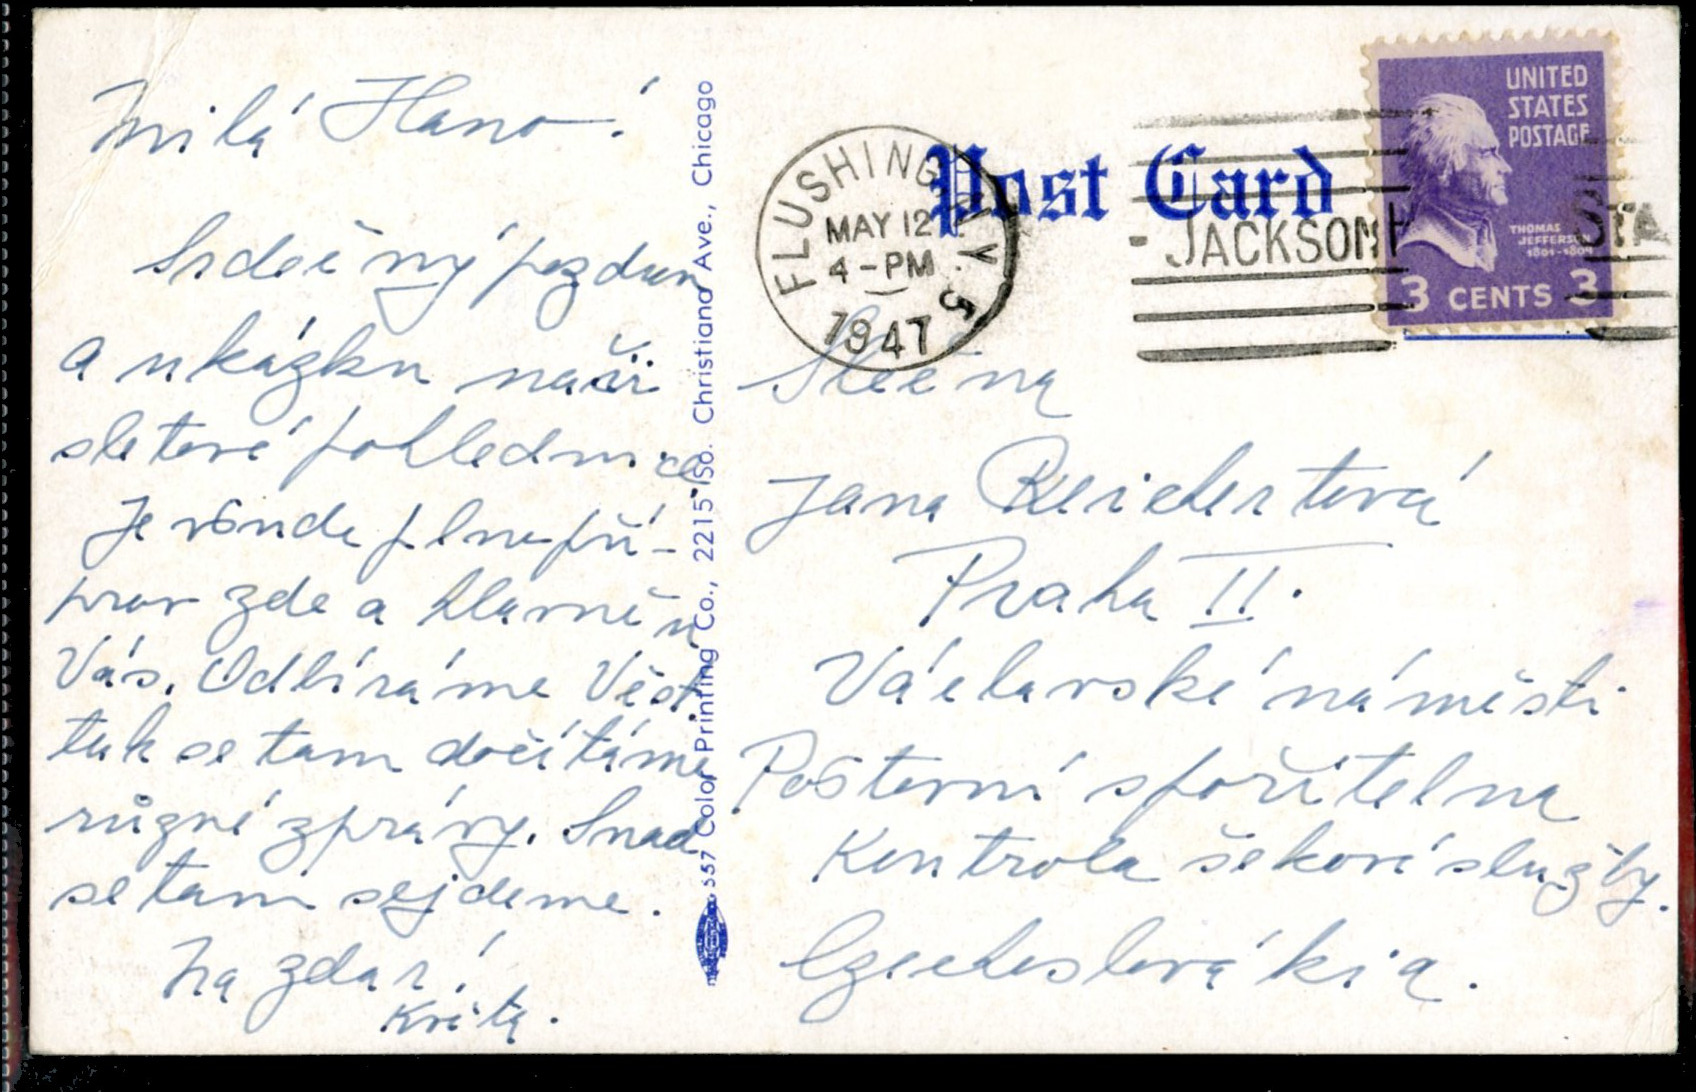 Milá Hano!
Srdečný pozdrav
a ukázku naší
sletové pohlednice
Je všude plno pří-
prav zde a hlavně u
Vás. Odbíráme Věst
tak se tam dočítáme
různé zprávy. Snad
se tam sejdeme.
Na zdar!
Květa.
557 Color Printing Co., 2215 So. Christiana Ave., Chicago
Post Card
FLUSHING N.Y. 5
MAY 12
4-PM
1947
JACKSON H STA
UNITED
STATES
POSTAGE
THOMAS
JEFFERSON
1801-1809
3 CENTS 3
Slečna
Jana Reichertová
Praha II.
Václavské náměstí
Poštovní spořitelna
Kontrola šekové služby.
Czechoslovákia.